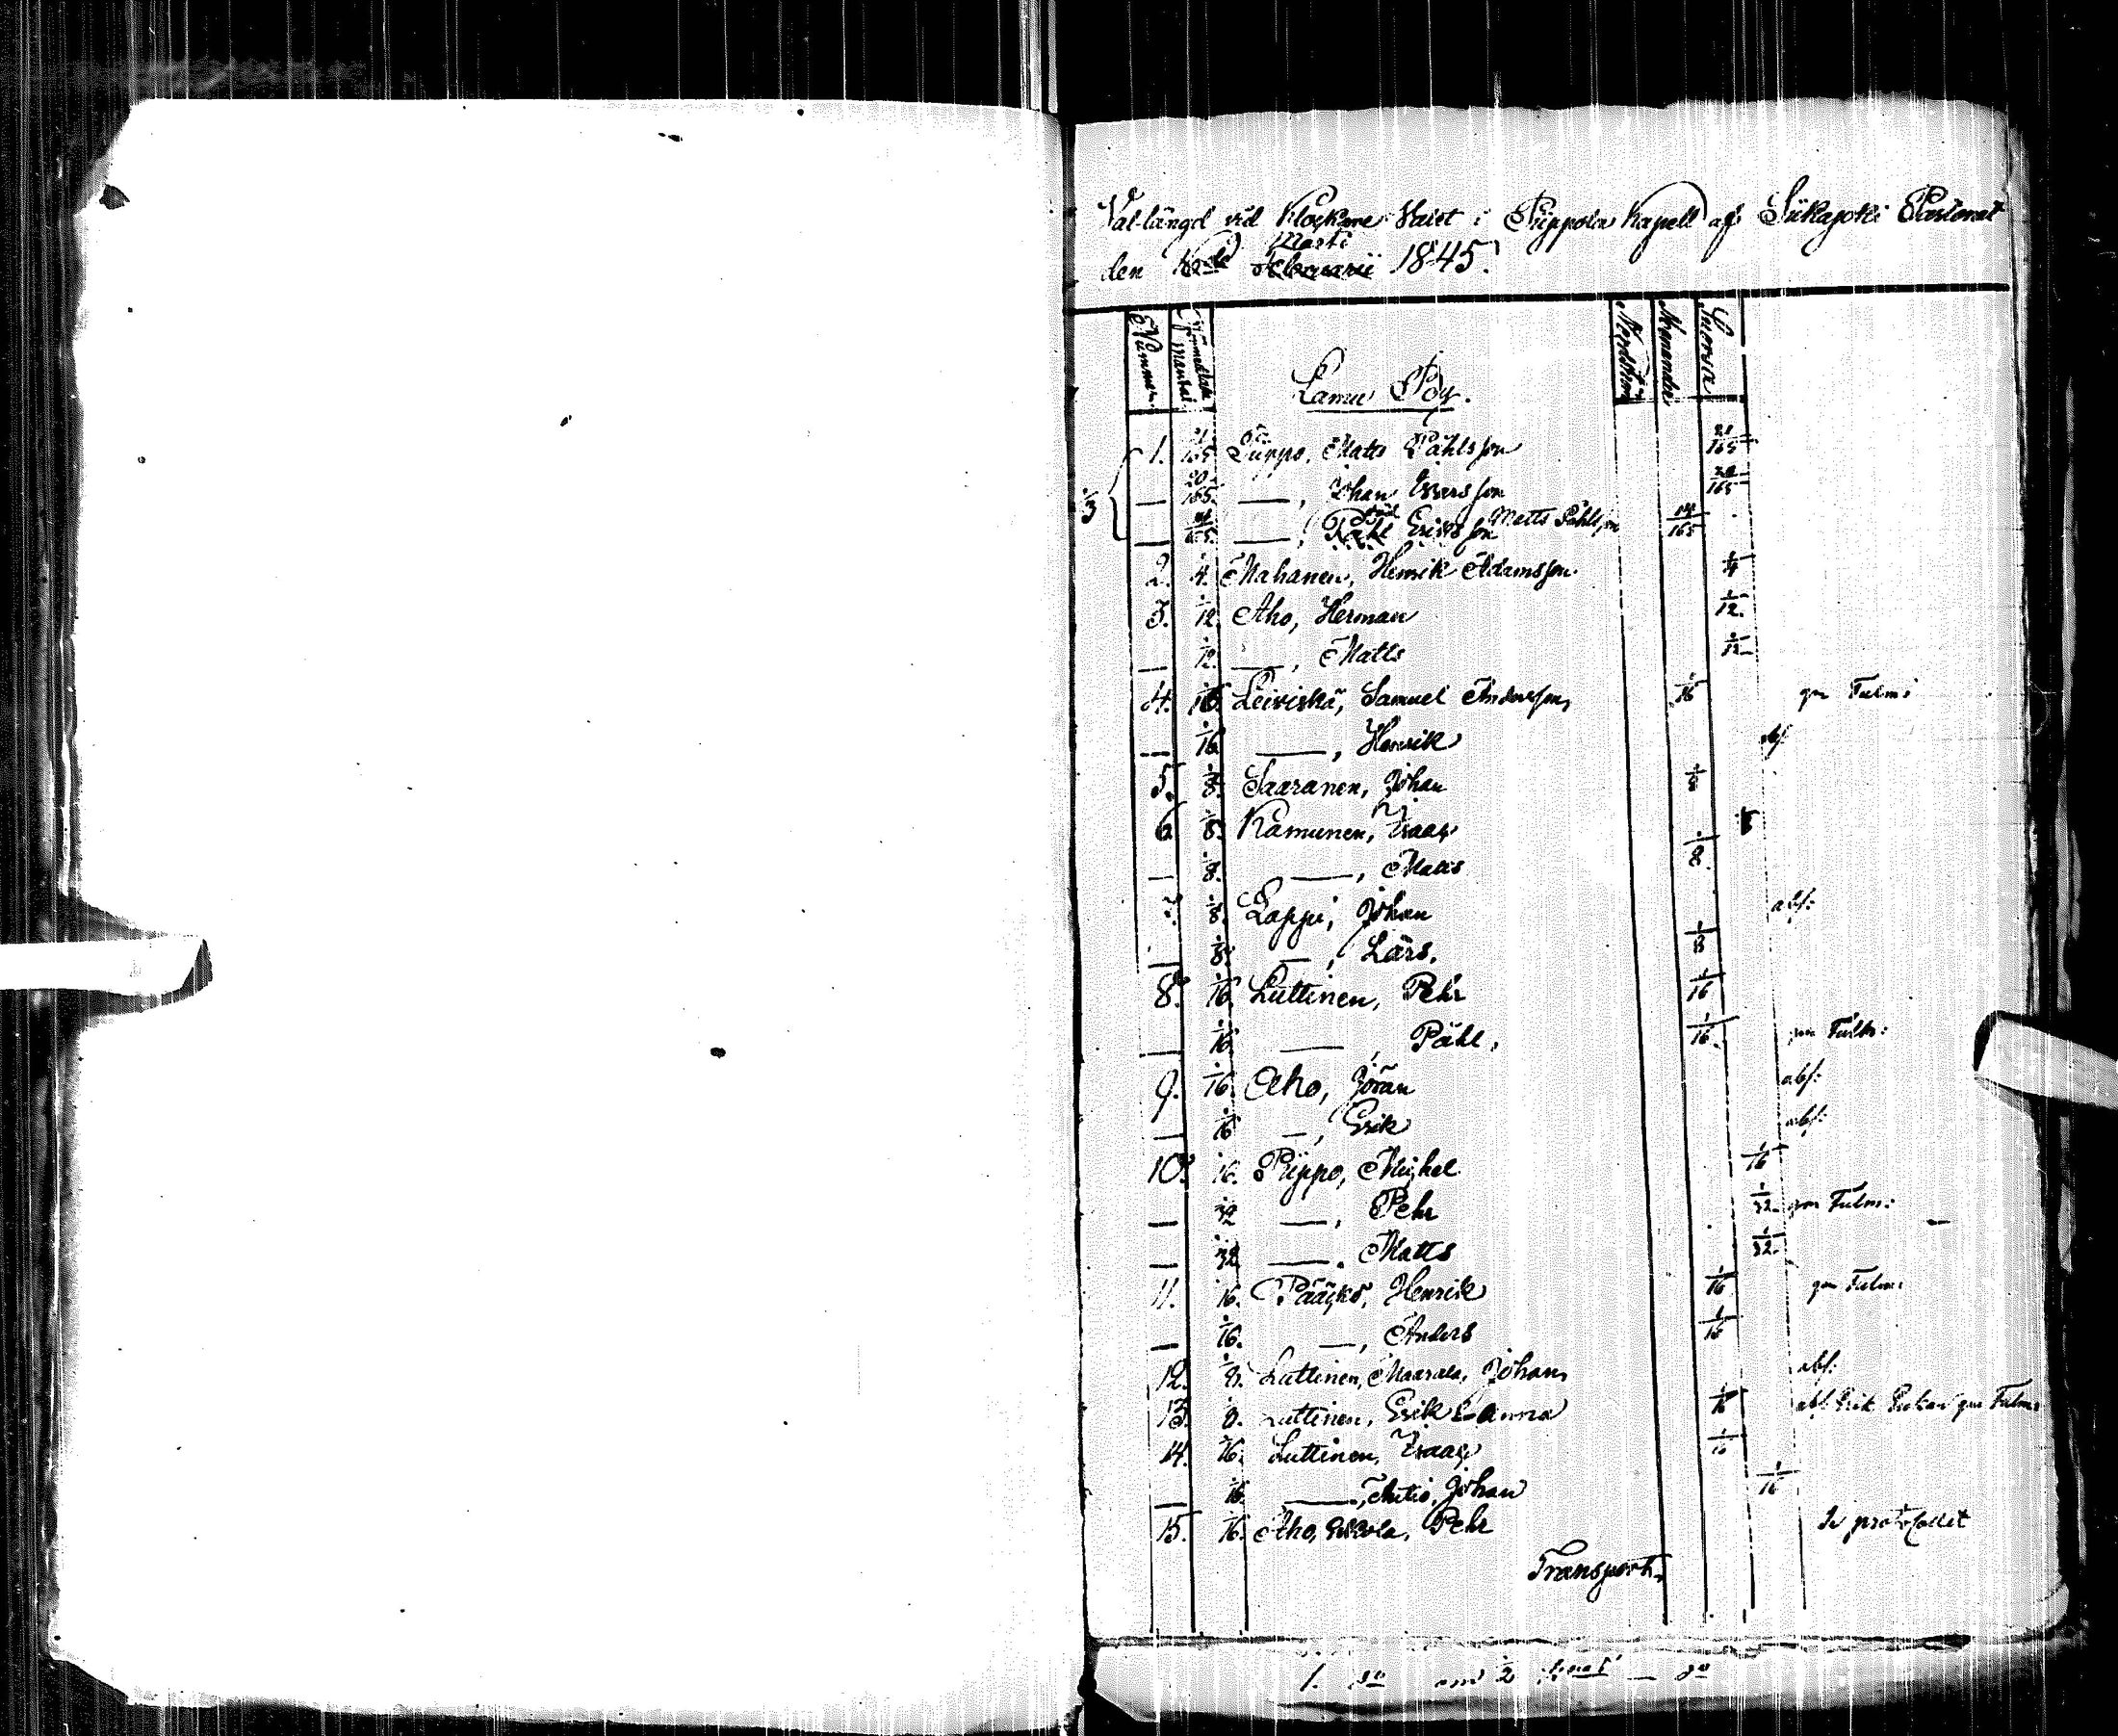 Val-längd vid Klockare Valet i Piippola Kapell af Siikajoki Pastorat
den Martii 1845.
Nummer. Oförmedlade mantal Lamu By. Nordström Alamanda Suorsa
1. 21/165 Piippo, Matts Påhlsson 21/165
1/3 — 20/165 —, Johan Ivarsson 20/165
— 14/165 —, Påhl Eriksson Matts Påhlsson 14/165
2. 1/4. Mahanen, Henrik Adamsson 1/4
3. 1/12. Aho, Herman 1/12.
— 1/12. —, Matts 1/12
4. 1/16. Leiviskä, Samuel Andersson 1/16 gm Fulm:
— 1/16 —, Henrik abs:
5. 1/8. Saaranen, Johan 1/8
6. 1/8. Kamunen, Isaac 1/8
— 1/8. —, Matts 1/8.
7. 1/8. Lappi, Johan abs:
— 1/8. —, Lars. 1/8
8. 1/16. Luttinen, Pehr 1/16
— 1/16. —, Påhl, 1/16. gm Fullm:
9. 1/16. Aho, Jöran abs:
— 1/16 —, Erik abs:
10. 1/16. Piippo, Michel 1/16
— 1/32 —, Pehr 1/32. gm Fulm:
— 1/32 —, Matts 1/32.
11. 1/16. Pääckö, Henrik 1/16 gm Fulm:
— 1/16. —, Anders 1/16
12. 1/8. Luttinen, Maarala, Johan abs:
13. 1/8. Luttinen, Erik Eanna 1/16 abs. Erik gm Fulm:
14. 1/16. Luttinen, Isaac 1/16
— 1/16. —, Antio, Johan 1/16
15. 1/16. Aho, Eskola, Pehr Se protocollet
Transport.